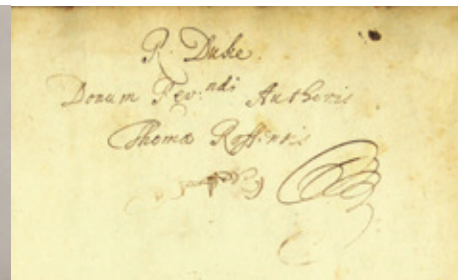 R. Duke.
Donum Rev:ndi Authoris
Thomæ Roffensis